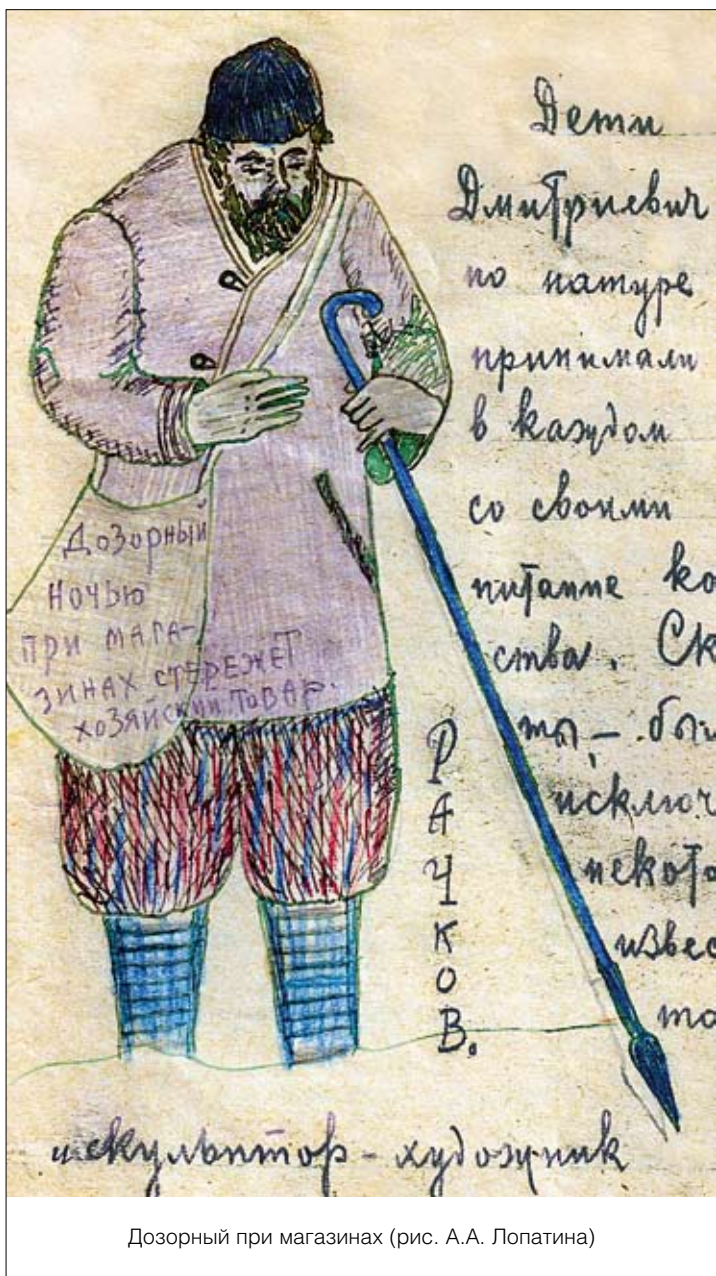 Дети
Дмитриевич
по натуре
принимали
в каждом
со своими
питание ко
ства. Ск
ты, – был
исключ
некото
извес
та
Дозорный
ночью
при мага-
зинах стережет
хозяйский товар.
Р
А
Ч
К
О
В.
и скульптор-художник
Дозорный при магазинах (рис. А.А. Лопатина)